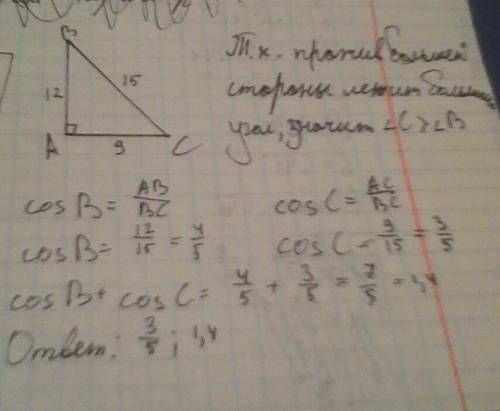 B
12
15
A
9
C
Т.к. против большей
стороны лежит больший
угол, значит ∠C>∠B
cosB = AB/BC
cosC = AC/BC
cosB = 12/15 = 4/5
cosC = 9/15 = 3/5
cosB + cosC = 4/5 + 3/5 = 7/5 = 1,4
Ответ: 3/5 ; 1,4